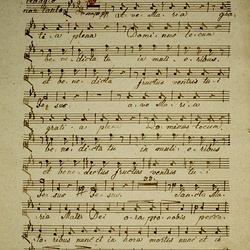 Adagio
non tanto a ve Maria gra,
ti-a plena Dominus tecum
be ne dicta tu in muli-eribus
et be ne dictus fructus ventris tu i
Je sus a ve Ma ri a
grati-a plena Dominus tecum
be ne dicta tu in muli-eribus
et bene dictus fructus ventris tu i
Je sus Je sus. Sancta Ma,
ria Mater Dei ora pro nobis pecca,
toribus nunc et in hora mortis nunc et in